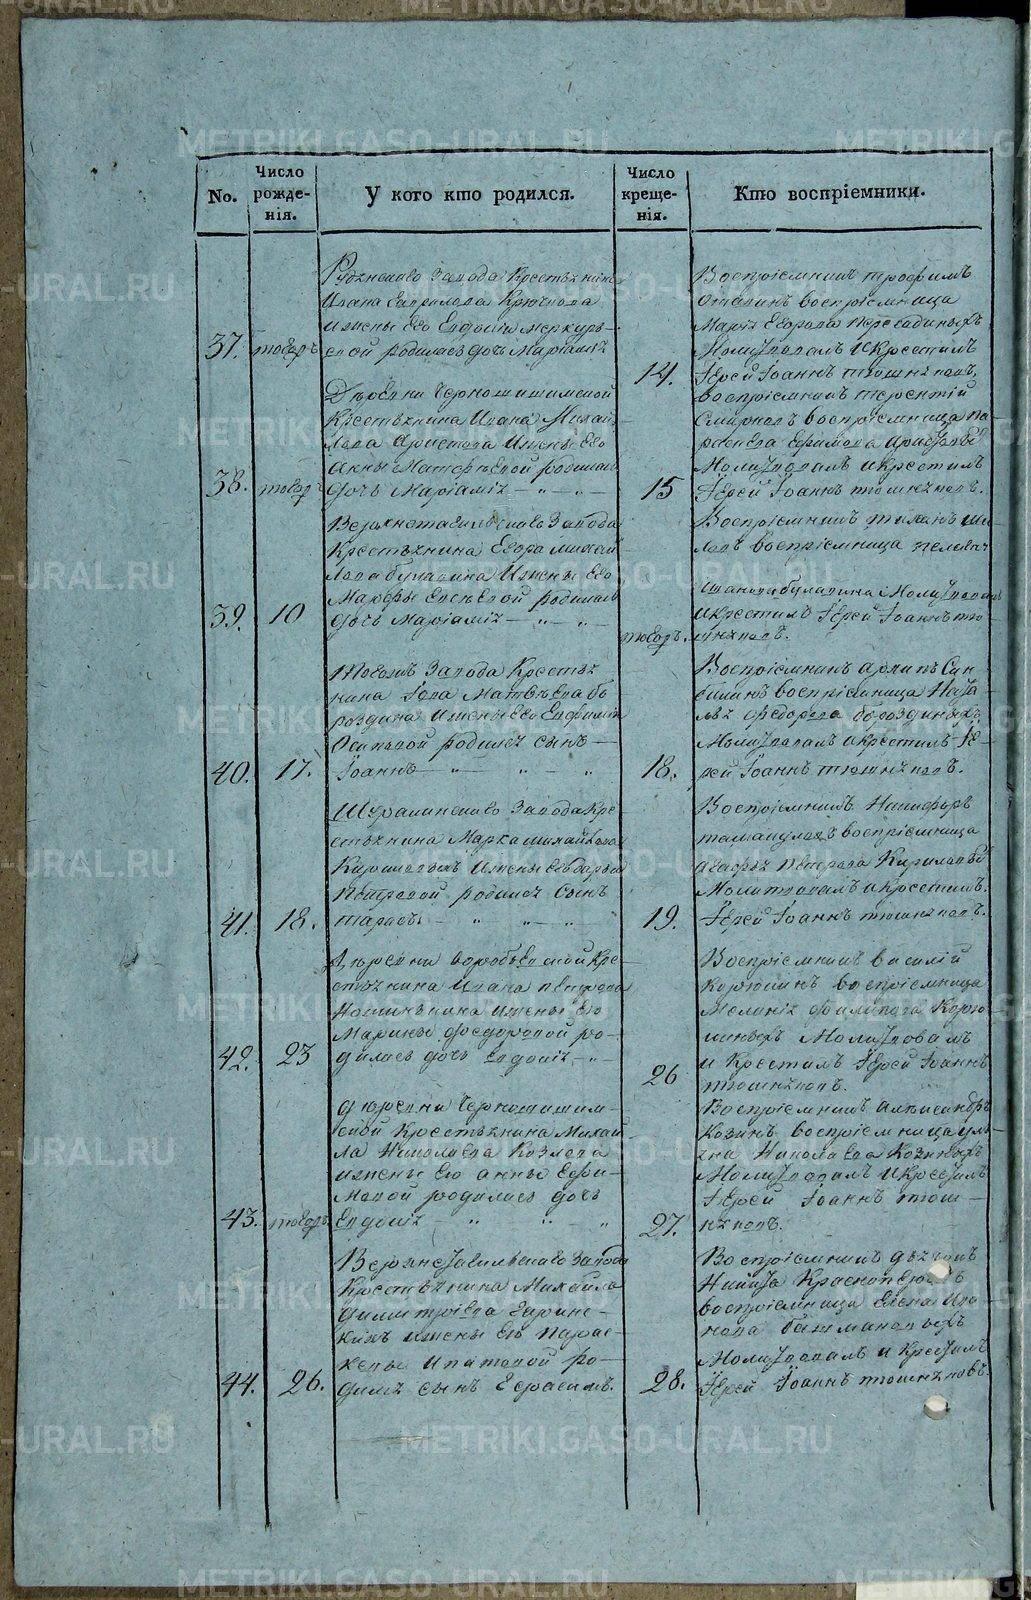 METRIKI.GASO-URAL.RU
No.
Число рожденія.
У кого кто родился.
Число крещенія.
Кто воспріемники.
37. тогожъ
Рудянскаго Завода Крестьянина
Ивана Гаврилова Крючкова
и жены Его Евдокіи меркурь-
евой родилась дочь Маріамія
14.
Воспріемникъ трофимъ
воспріемница
Марія Егорова
Молитвовалъ и Крестилъ
Іерей Іоаннъ тюшняковъ.
38. тогожъ
Деревни Черношишимской
Крестьянина Ивана Михай
лова Аристова и жены Его
Анны родилась
дочь Маріамія
15
воспріемникъ терентій
Смирновъ воспріемница па-
раскева Ефимова Аристовы
Молитвовалъ и крестилъ
Іерей Іоаннъ тюшняковъ.
39. 10
Верхнетагильскаго Завода
Крестьянина Егора михай
лова булавина и жены Его
Марфы родилась
дочь Маріамія
тогожъ.
Воспріемникъ
воспріемница пелагія
булавина Молитвовалъ
и крестилъ Іерей Іоаннъ тю-
шняковъ.
40. 17.
Тогожъ Завода Крестья
нина Іова Матвѣева бо
роздина и жены Его Евфиміи
Осиповой родился сынъ
Іоаннъ
18.
Воспріемникъ архипъ
воспріемница Ната-
лья федорова бороздиныхъ
Молитвовалъ и крестилъ Іе-
рей Іоаннъ тюшняковъ.
41. 18.
Шуралинскаго Завода Кре
стьянина Марка михайлова
Кириловыхъ и жены Его Дарьи
Петровой родился сынъ
тарасъ
19.
Воспріемникъ Никифоръ
воспріемница
петрова Кириловы
Молитвовалъ и крестилъ.
Іерей Іоаннъ тюшняковъ.
42. 23
Деревни воробьевской Кре
стьянина Ивана петрова
и жены Его
Марины феодоровой ро-
дилась дочь Евдокія
26
Воспріемникъ василій
Корюкинъ воспріемница
филипова Корю
киныхъ Молитвовалъ
и Крестилъ Іерей Іоаннъ
тюшняковъ.
43. тогожъ
деревни Черношишим-
ской Крестьянина Михай
ла Николаева Козлова
и жены Его анны Ефи-
мовой родилась дочь
Евдокія
27.
Воспріемникъ александръ
Козинъ воспріемница улья-
на Николаева Козиныхъ
Молитвовалъ и Крестилъ
Іерей Іоаннъ тюш-
няковъ.
44. 26.
Верхнетагильскаго Завода
Крестьянина Михайла
Димитріева
и жены Его Парас-
кевы Ипатовой ро-
дился сынъ Герасимъ.
28.
Воспріемникъ дьячокъ
Никита Красноперовъ
воспріемница Елена Ива-
нова башмаковыхъ
Молитвовалъ и Крестилъ
Іерей Іоаннъ тюшняковъ.